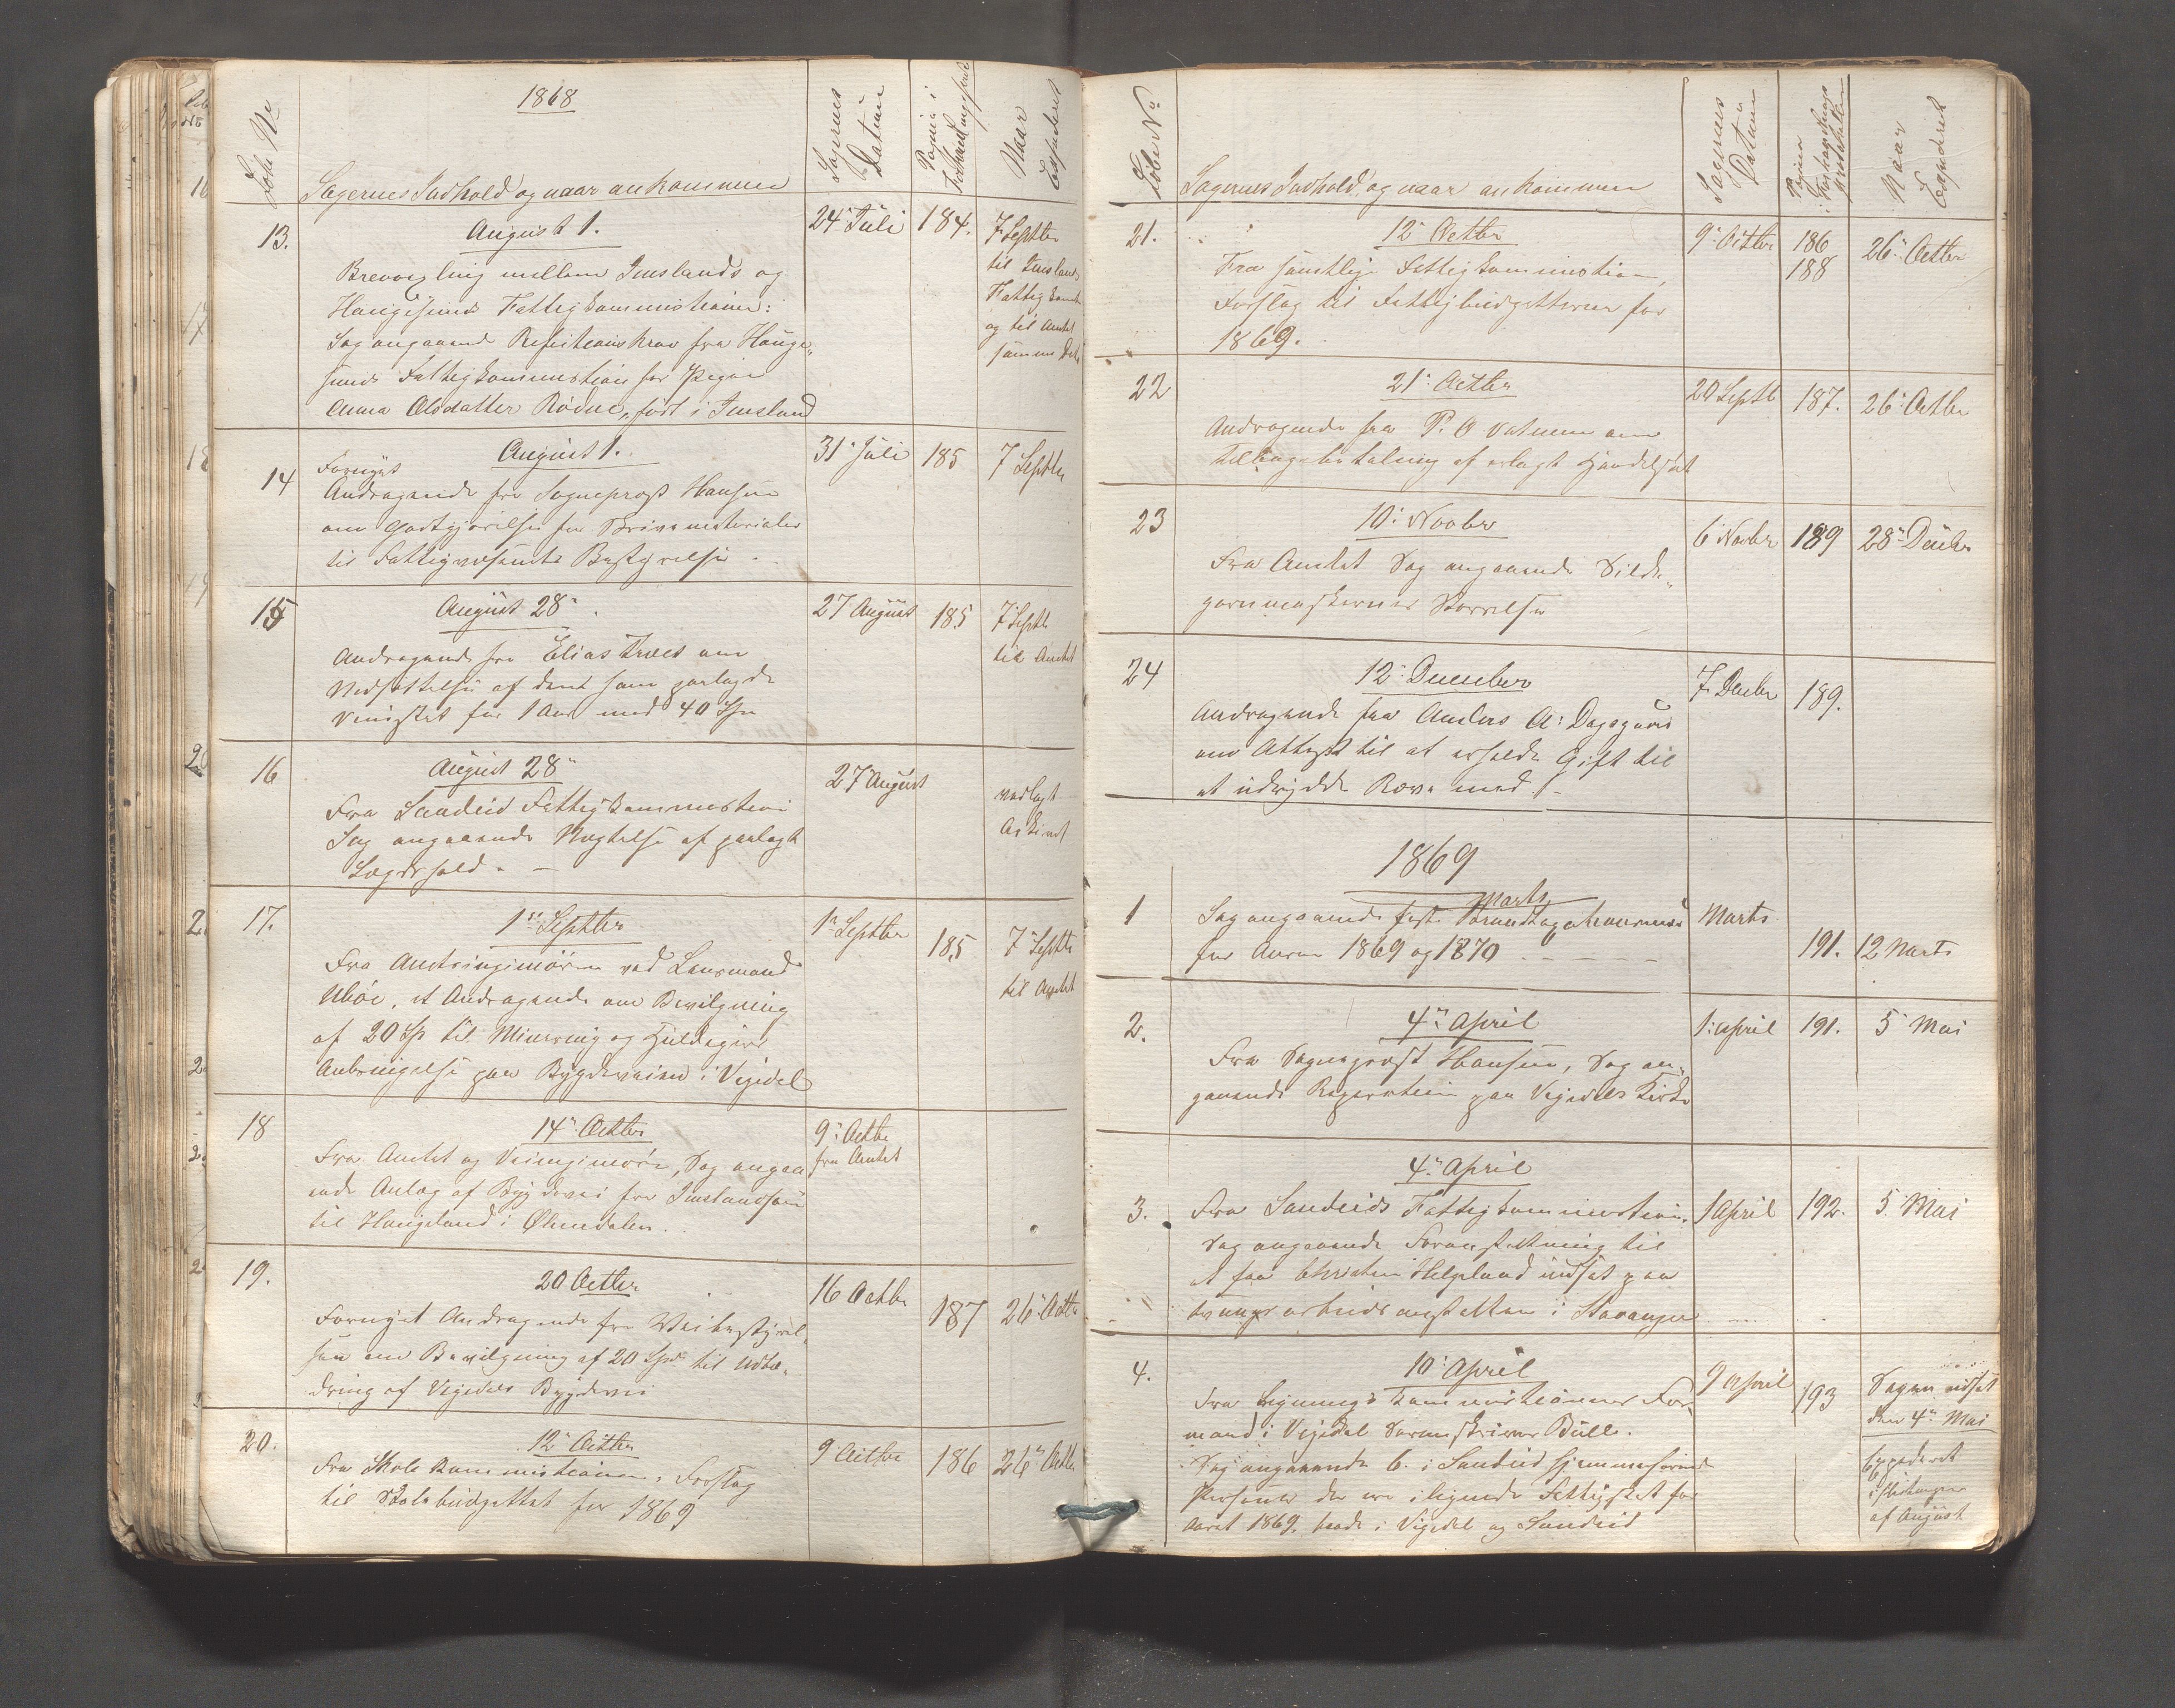 1868
Løbe No
Sagernes Indhold og naar ankommen
Sagernes Datum
Pagina i Forhandlingsprot
Naar Expederet
13.
August 1.
24 Juli
184.
7 Septbr
til Imslands
Fattigkom
og til Amtet
samme Dato
Brevvexling mellem Imslands og
Haugesunds Fattigkommission:
Sag angaaende Refusionskrav fra Hauge-
sunds Fattigkommission for Pigen
Anna Olsdatter Rødne, født i Imsland
14
August 1.
31 Juli
185
7 Septbr
Fornyet
Andragende fra Sogneprest Hansen
om Godtgjørelse for Skrivematerialer
til Fattigvæsenets Bestyrelse
15
August 28
27 August
185
7 Septb
til Amtet
Andragende fra Elias Træes om
Nedsættelse af den ham paalagde
for 1 Aar med 40 Spd
16
August 28
27 August
vedlagt
Arkivet
Fra Sandeid Fattigkommission
Sag angaaende Negtelse af paalagt
Lægdshold.
17.
1ste Septbr
1n Septbr
185
7 Septbr
til Amtet
Fra Amtsingeniøren ved Lensmand
et Andragende om Bevilgning
af 20 Sp til Minering og
Anbringelse paa Bygdeveien i Vigedal
18
14 Octbr
9 Octbr
fra Amtet
Fra Amtet og Veiingeniøren, Sag angaa
ende Anlæg af Bygdevei fra Imslandssøen
til Haugeland i Ølmedalen.
19.
20 Octbr
16 Octbr
187
26 Octbr
Fornyet Andragende fra Veibestyrel
sen om Bevilgning af 20 Spd til Udbe-
dring af Vigedals Bygdevei
20.
12 Octbr
9 Octbr
186
26 Octbr
Fra Skolekommissionen, Forslag
til Skolebudgettet for 1869
Løbe No
Sagernes Indhold og naar ankommen
Sagernes Datum
Pagina i Forhandlings protokollen
Naar Expederet
21.
12 Octbr
9 Octbr
186
188
26 Octbr
Fra samtlige Fattigkommission
Forslag til Fattigbudgetterne for
1869.
22
21 Octbr
20 Septb
187.
26 Octbr
Andragende fra P. O Vatnem om
Tilbagebetaling af erlagt
23
10 Novbr
6 Novbr
189
28 Decbr
Fra Amtet Sag angaaende Silde-
garnmaskernes Størrelse
24
12 December
7 Decbr
189.
Andragende fra Anders A: Dagsgard
om Attest til at erholde Gift til
at udrydde Ræve med.
1869
1
Marts
Marts
191.
12 Marts
Sag angaaende faste
for Aarene 1869 og 1870
2.
4 April
1 April
191.
5 Mai
Fra Sogneprest Hansen, Sag an-
gaaende Reparation paa Vigedals Kirke
3.
4 April
1 April
192.
5 Mai
Fra Sandeids Fattigkommission.
Sag angaaende Foranstaltning til
at faa Christen Helgeland indsat paa
tvangsarbeidsanstalten i Stavanger
4.
10 April
9 April
193
Sagen udsat
den 4 Mai
Expederet
i Slutningen
af August
Fra Ligningskommissionens For
mand i Vigedal Sorenskriver Bull.
Sag angaaende 6. i Sandeid hjemmehørende
Personer der ere ilignede Fattigskat for
Aaret 1869, baade i Vigedal og Sandeid